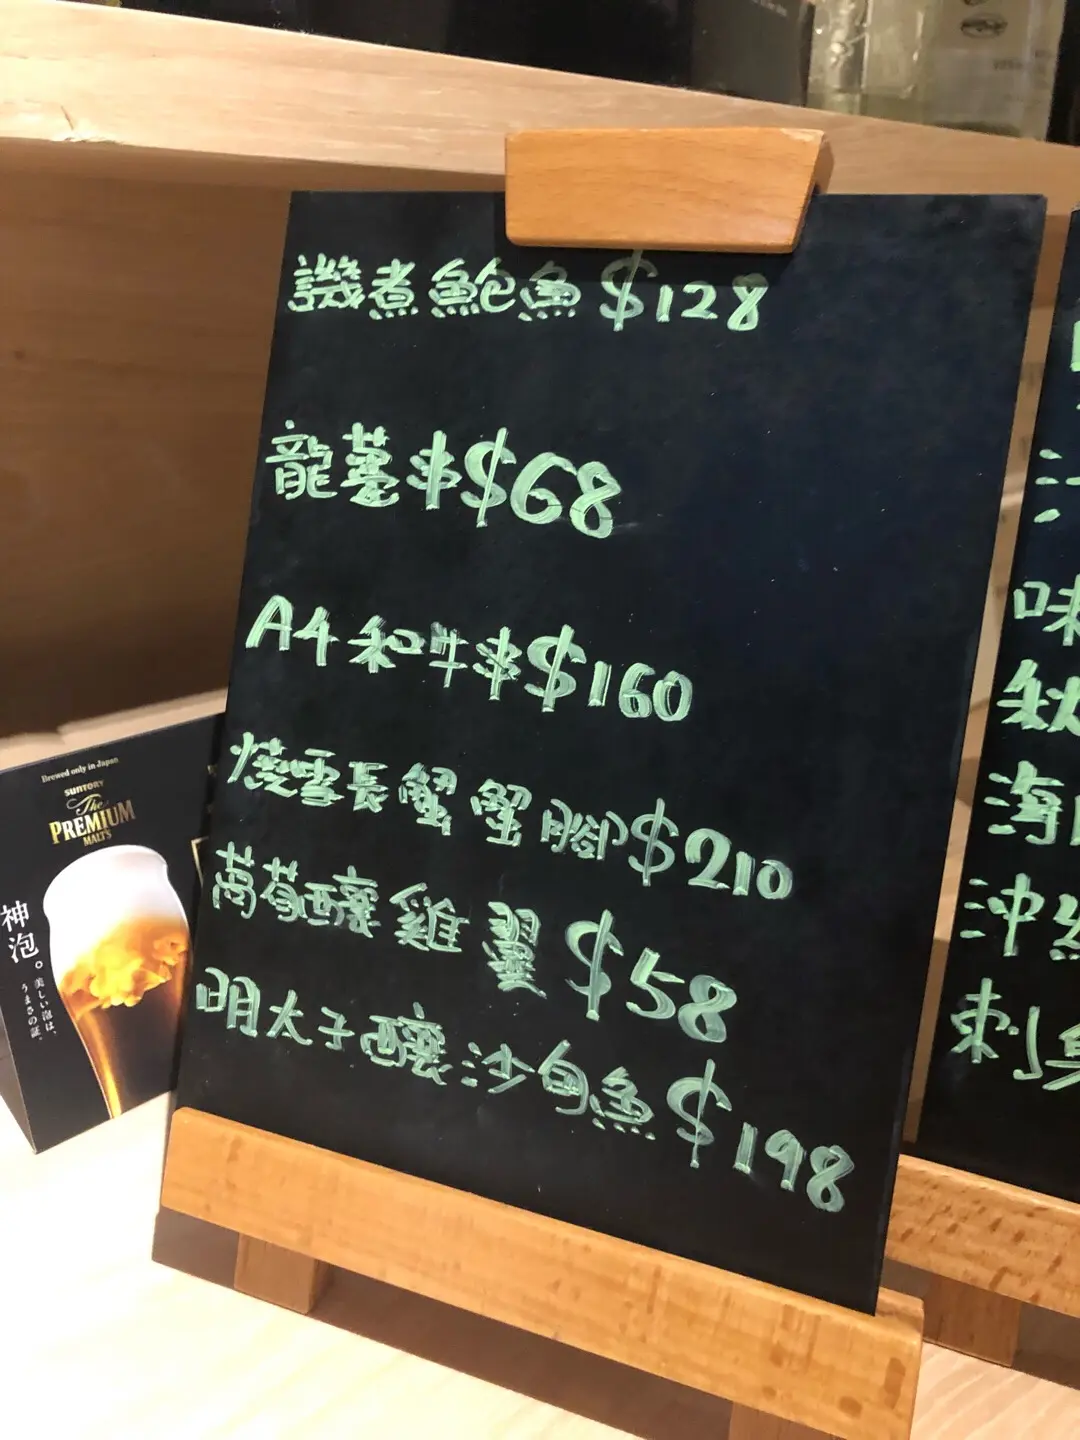 譏煮鮑魚 $128
龍薹串 $68
A4和牛串 $160
燒雪長蟹蟹腳 $210
萵荀釀雞翼 $58
明太子釀沙甸魚 $198
Brewed only in Japan
SUNTORY
The
PREMIUM
MALT'S
神泡。
美しい泡は、
うまさの証。
味
秋
海
沖縄
刺身